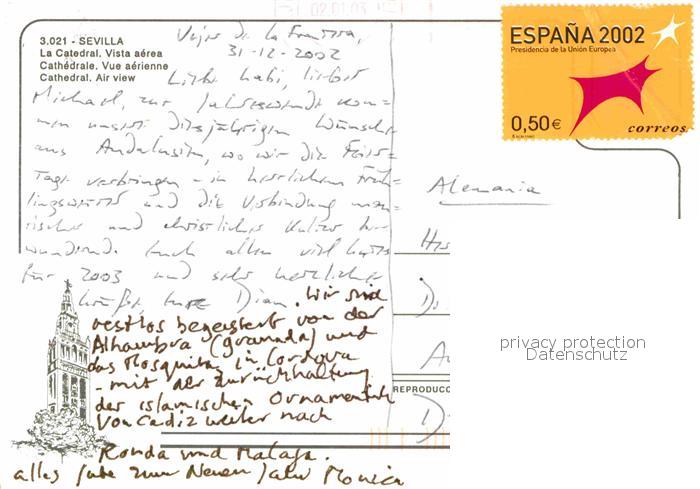 02.01.03
3.021 - SEVILLA
La Catedral. Vista aérea
Cathédrale. Vue aérienne
Cathedral. Air view
Vejer de la Frontera,
31-12-2002
Liebe Gabi, lieber
Michael, zur Jahreswende kom=
men unsere diesjährigen Wünsche
aus Andalusien, wo wir die Feier=
Tage verbringen - in herrlichem Früh=
lingswetter und die Verbindung mau=
rischer und christlicher Kultur be=
wundernd. Euch allen viel Gutes
für 2003 und sehr herzliche
Grüße, Eure Diana. Wir sind
restlos begeistert von der
Alhambra (Granada) und
das Mosquita in Cordova
- mit der Zurückhaltung
der islamischen Ornamentik
Von Cadiz weiter nach
Ronda und Malaga.
alles Gute zum Neuen Jahr Monica
ESPAÑA 2002
Presidencia de la Unión Europea
0,50€
correos
Alemania
REPRODUC
privacy protection
Datenschutz